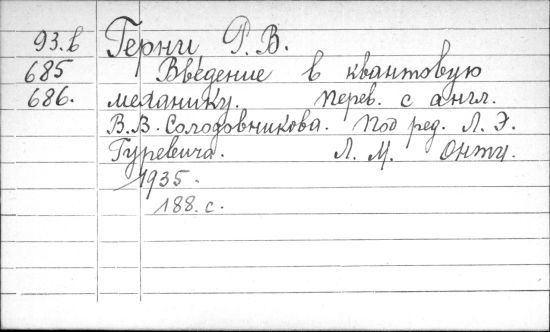 93.в Герни Р. В.
685 Введение в квантовую
686. механику. Перев. с англ.
В.В. Солодовникова. Под ред. Л. Э.
Гуревича. Л. М. Онти.
1935.
188. с.